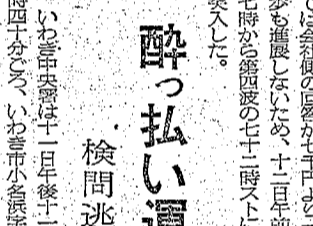 では会社側の回答が七千円より
歩も進展しないため、十二日午前
七時から第四波の七十二時ストに
突入した。
酔っ払い運
検問逃
いわき中央署は十一日午後十一
時四十分ごろ、いわき市小名浜